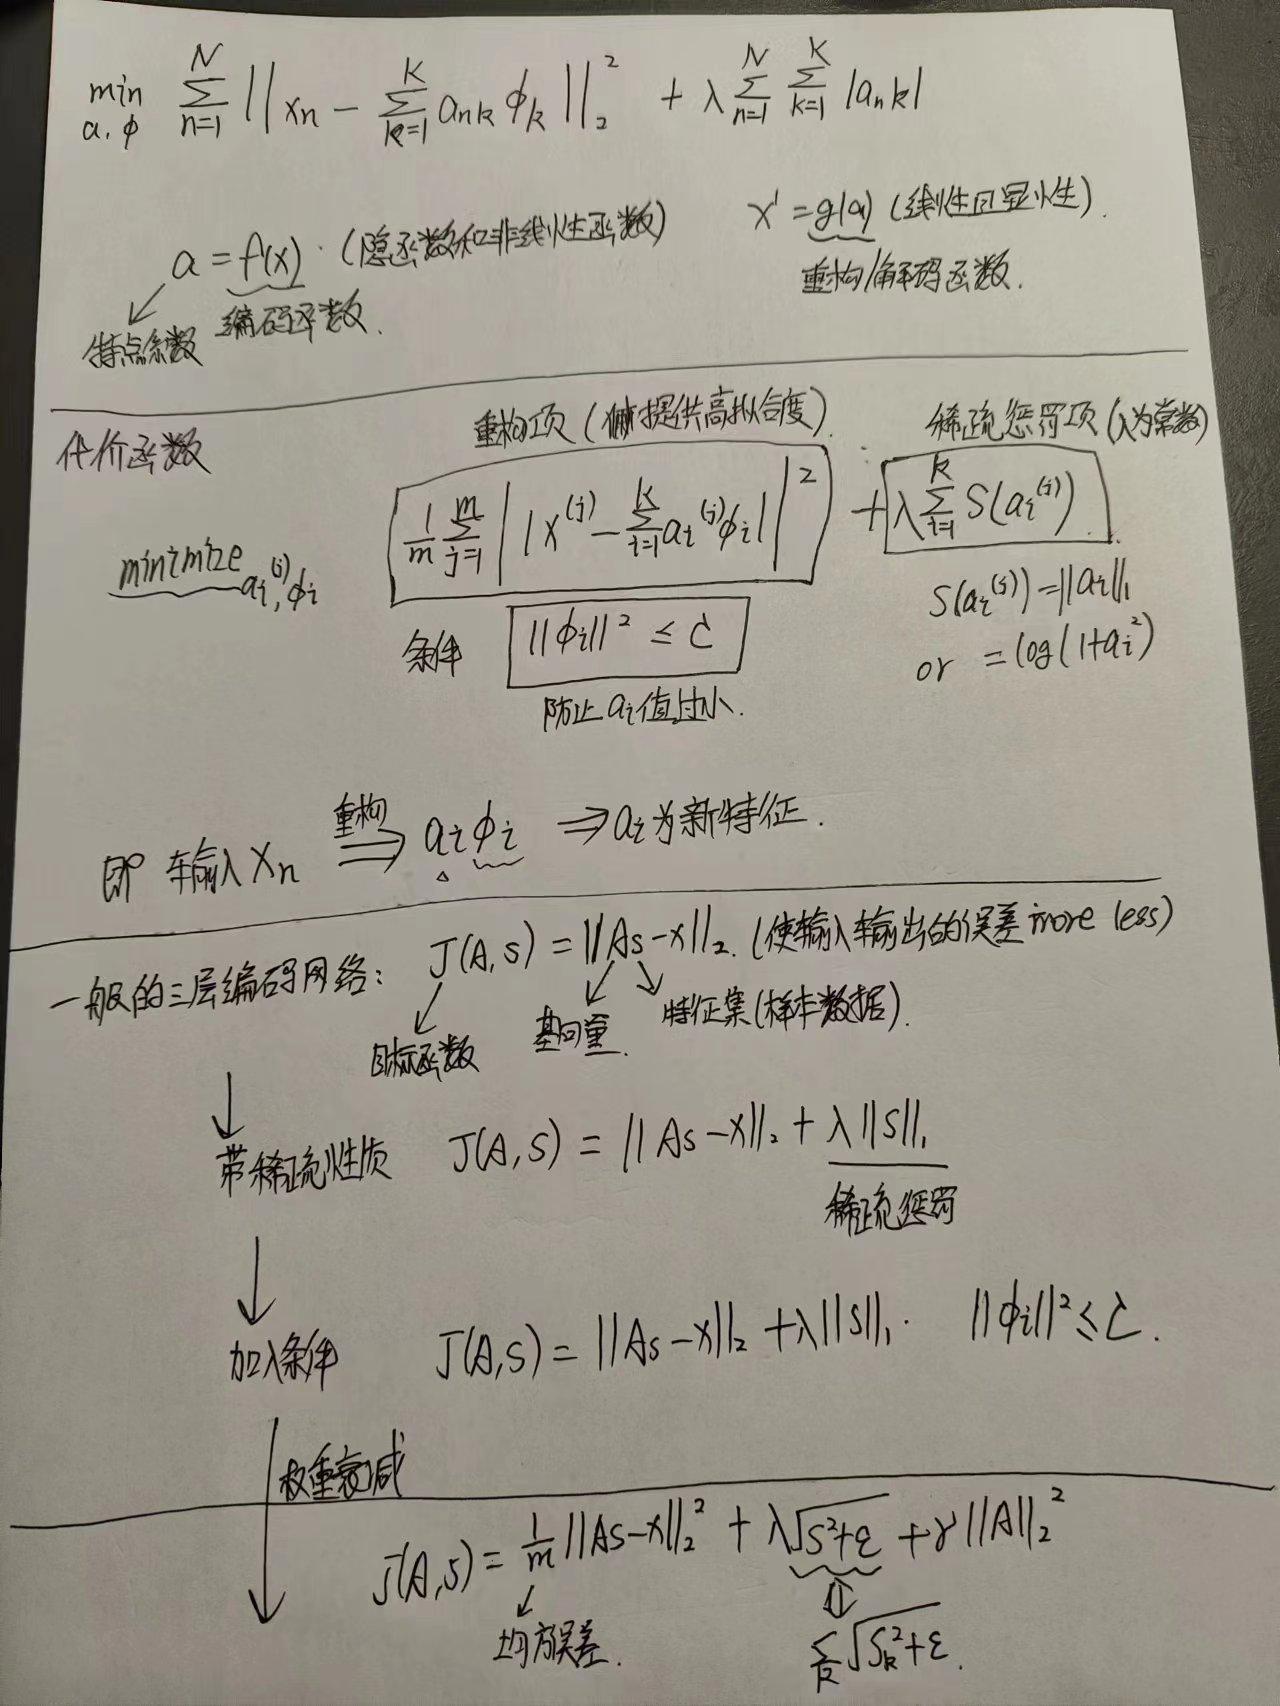 min a, φ Σ_{n=1}^{N} ||x_n − Σ_{k=1}^{K} a_{nk} φ_k||_2^2 + λ Σ_{n=1}^{N} Σ_{k=1}^{K} |a_{nk}|
a = f(x). (隐函数和非线性函数) x' = g(a) (线性且显性).
特点系数 编码函数. 重构/解码函数.
代价函数 重构项 (提供高拟合度) 稀疏惩罚项 (λ为常数)
minimize a_i^{(j)}, φ_i 1/m Σ_{j=1}^{m} ||x^{(j)} − Σ_{i=1}^{k} a_i^{(j)} φ_i||^2 + λ Σ_{i=1}^{k} S(a_i^{(j)})
条件 ||φ_i||^2 ≤ C S(a_i^{(j)}) = ||a_i||_1
防止 a_i 值过小. or = log(1+a_i^2)
即 输入 x_n 重构 ⇒ a_i φ_i ⇒ a_i 为新特征.
一般的三层编码网络: J(A,s) = ||As−x||_2. (使输入输出的误差 more less)
目标函数 基向量. 特征集 (样本数据).
↓
带稀疏性质 J(A,s) = ||As−x||_2 + λ||s||_1
稀疏惩罚
↓
加入条件 J(A,s) = ||As−x||_2 + λ||s||_1. ||φ_i||^2 ≤ C.
↓ 权重衰减
J(A,s) = 1/m ||As−x||_2^2 + λ√(s^2+ε) + γ||A||_2^2
均方误差. ⇕ Σ_k √(s_k^2+ε).